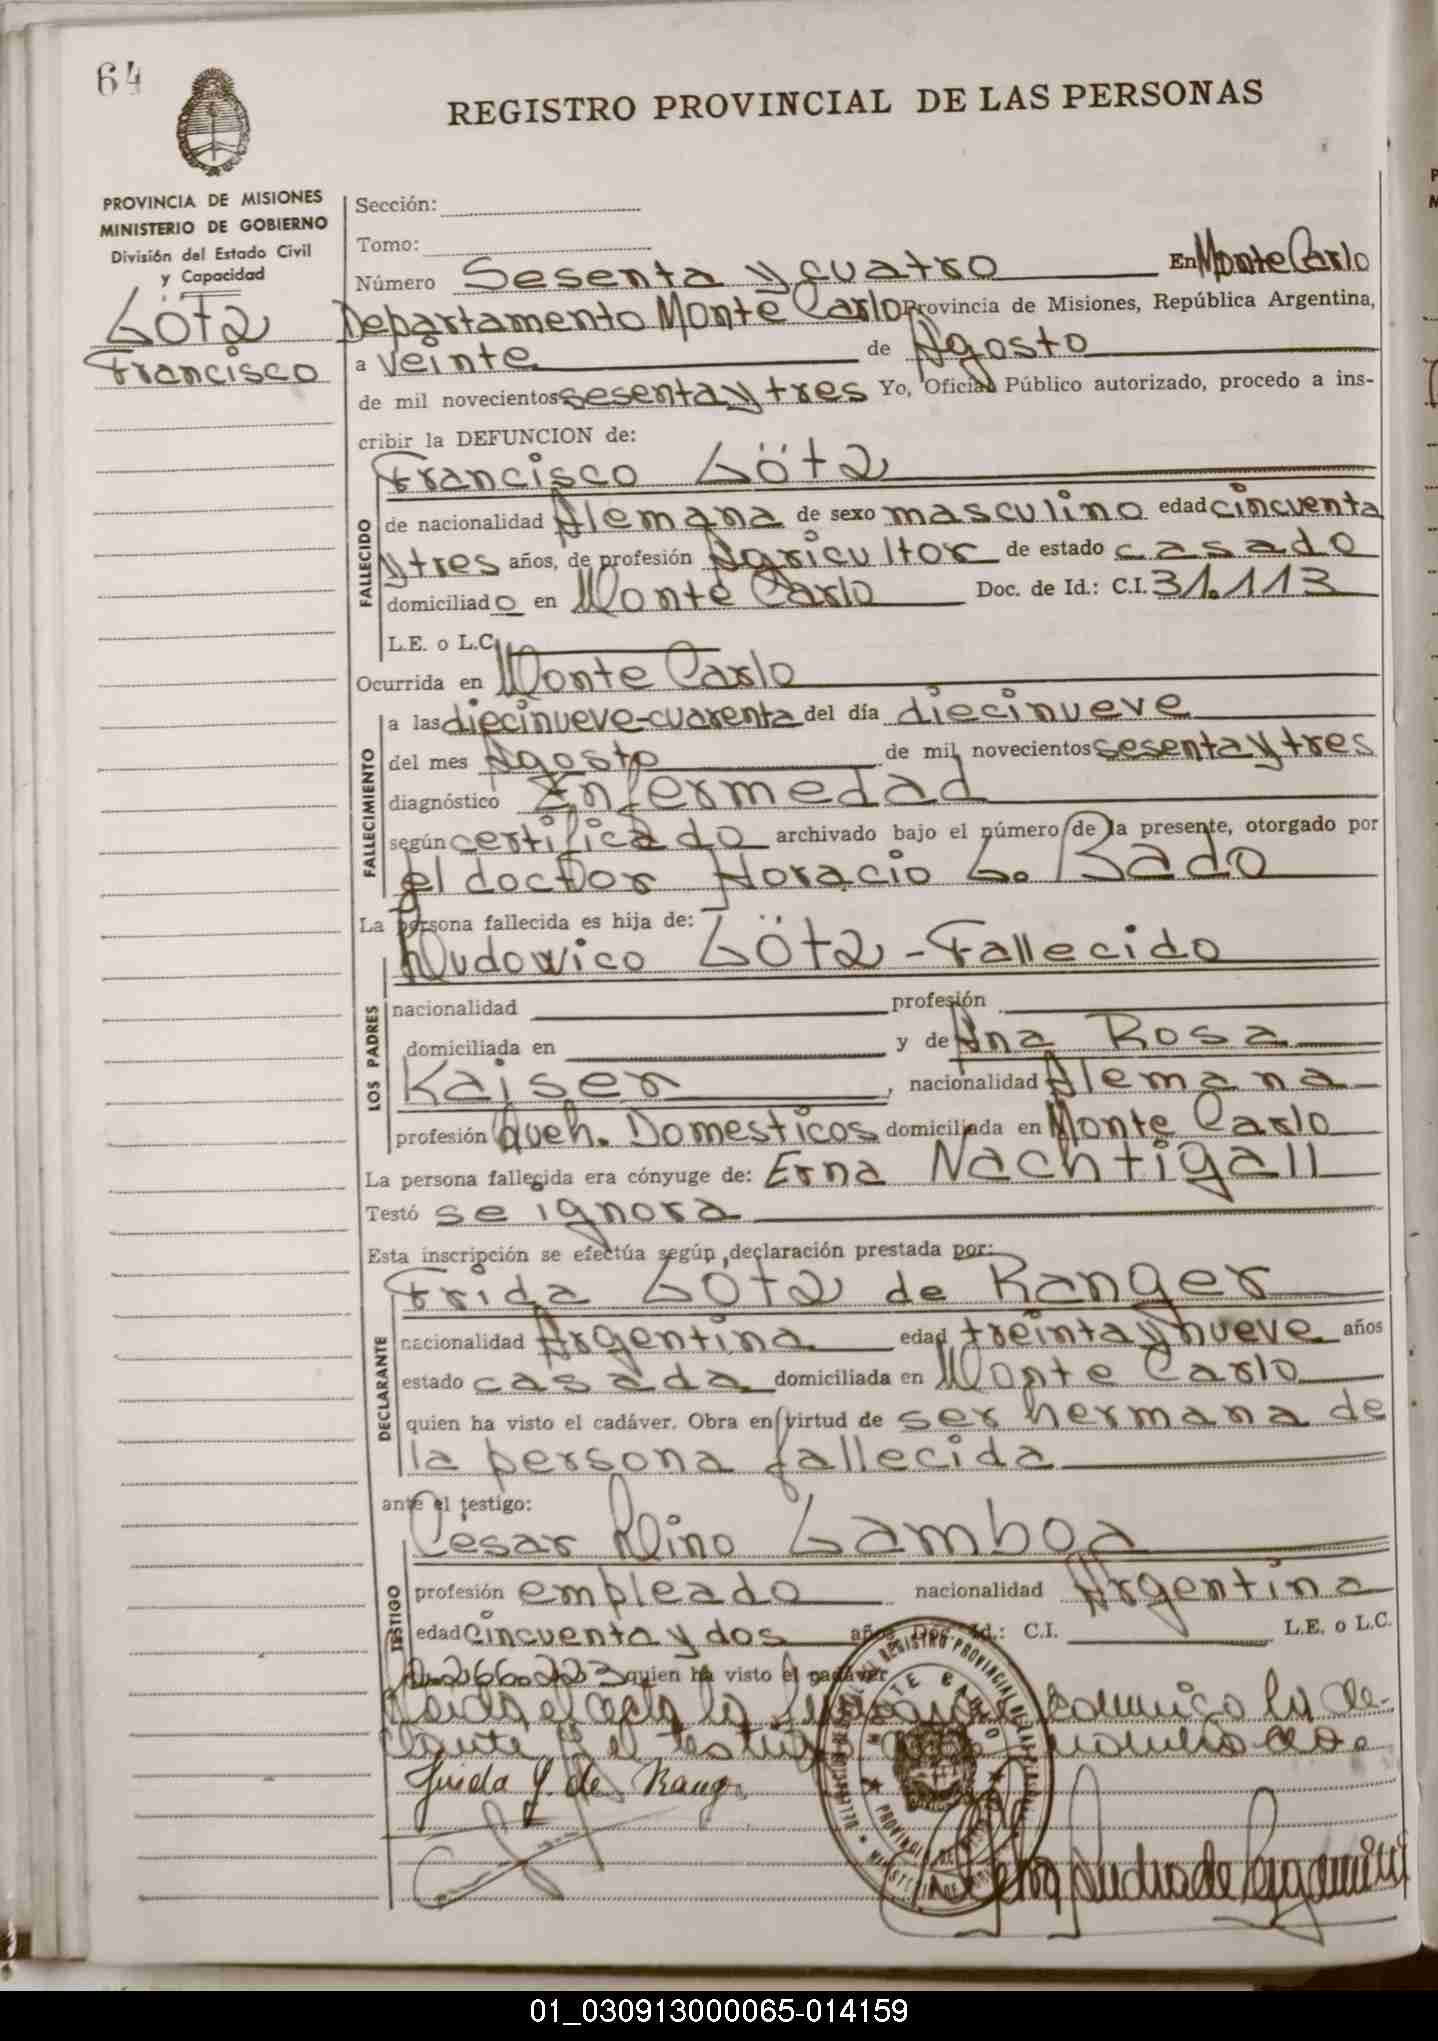 64
REGISTRO PROVINCIAL DE LAS PERSONAS
PROVINCIA DE MISIONES
MINISTERIO DE GOBIERNO
División del Estado Civil
y Capacidad
Götz
Francisco
Sección:
Tomo:
Número Sesenta y cuatro En Monte Carlo
Departamento Monte Carlo Provincia de Misiones, República Argentina,
a veinte de Agosto
de mil novecientos sesenta y tres Yo, Oficial Público autorizado, procedo a ins-
cribir la DEFUNCION de:
Francisco Götz
FALLECIDO
de nacionalidad Alemana de sexo masculino edad cincuenta
y tres años, de profesión Agricultor de estado casado
domiciliado en Monte Carlo Doc. de Id.: C.I. 31.113
L.E. o L.C.
Ocurrida en Monte Carlo
FALLECIMIENTO
a las diecinueve-cuarenta del día diecinueve
del mes Agosto de mil novecientos sesenta y tres
diagnóstico Enfermedad
según certificado archivado bajo el número de la presente, otorgado por
el doctor Horacio G. Rado
La persona fallecida es hija de:
Ludowico Götz - Fallecido
LOS PADRES
nacionalidad profesión
domiciliada en y de Ana Rosa
Kaiser , nacionalidad Alemana
profesión Queh. Domesticos domiciliada en Monte Carlo
La persona fallecida era cónyuge de: Erna Nachtigall
Testó se ignora
Esta inscripción se efectúa según declaración prestada por:
Frida Götz de Ranger
DECLARANTE
nacionalidad Argentina edad treinta y nueve años
estado casada domiciliada en Monte Carlo
quien ha visto el cadáver. Obra en virtud de ser hermana de
la persona fallecida
ante el testigo:
Cesar Lino Gamboa
TESTIGO
profesión empleado nacionalidad Argentina
edad cincuenta y dos años Doc. Id.: C.I. L.E. o L.C.
266.223 quien ha visto el cadáver
Leida el acta la firman conmigo la de-
clarante y el testigo
Frida G. de Rang
REGISTRO PROVINCIAL DE LAS PERSONAS
MONTE CARLO
PROVINCIA DE MISIONES
01_030913000065-014159